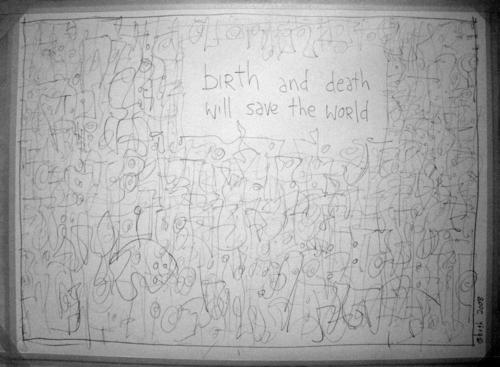 birth and death
will save the world
2008